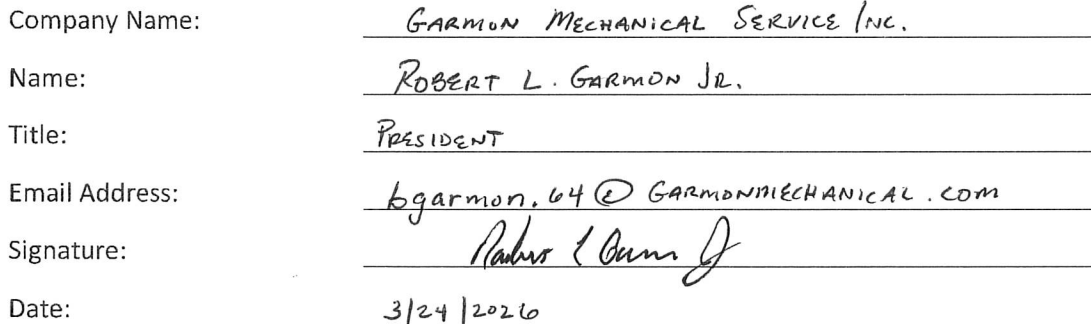 Company Name: GARMON MECHANICAL SERVICE INC.
Name: ROBERT L. GARMON JR.
Title: PRESIDENT
Email Address: bgarmon.64@GARMONMECHANICAL.COM
Signature:
Date: 3/24/2026